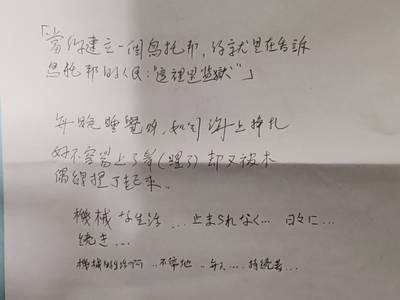 「當你建立一個烏托邦,你就是在告訴
烏托邦的人民:"這裡是監獄"」
每晚睡覺時,如同海上掙扎
好不容易上了岸(醒了)却又被木
偶線提了起來.
機械な生活...止まられなく...日々に...
続き...
機械的生活啊...不停地...每天...持續着...